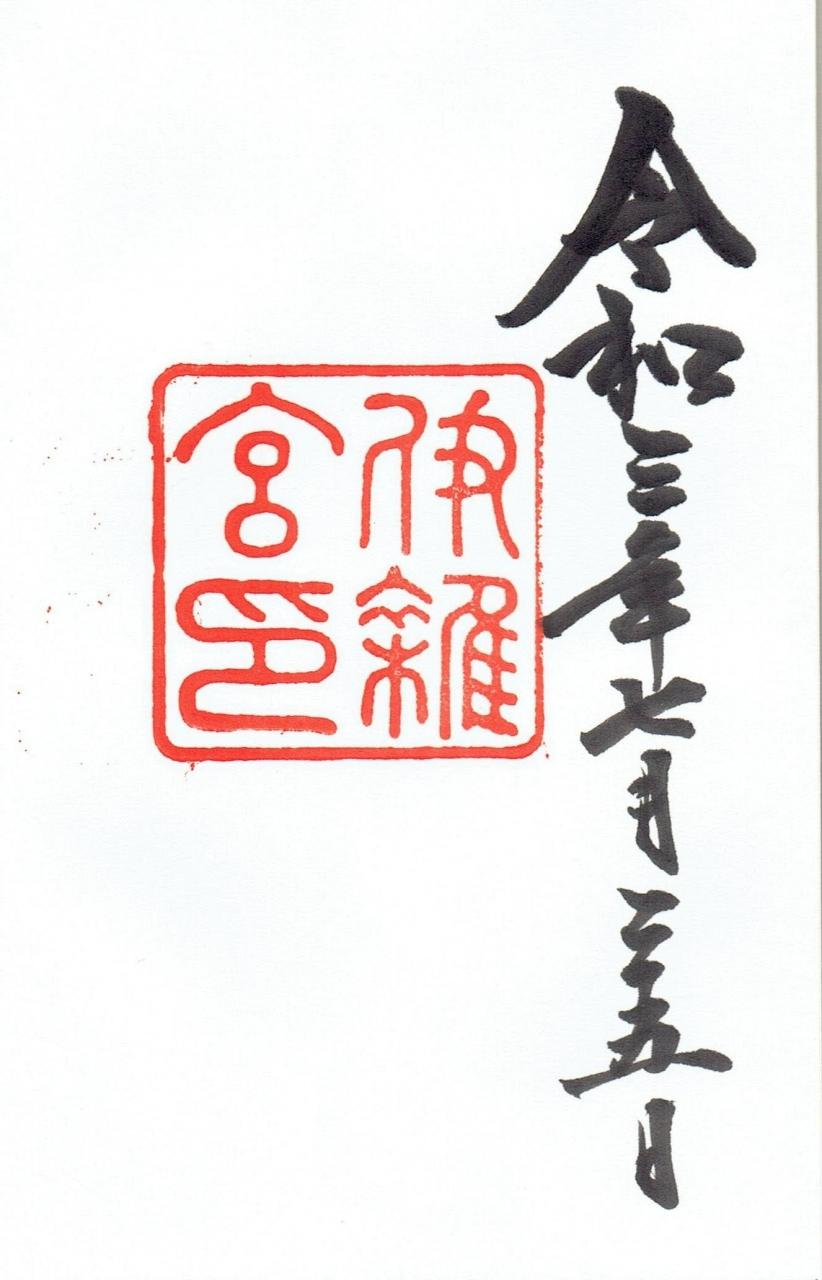 令和三年七月二十五日
伊雜
宮印